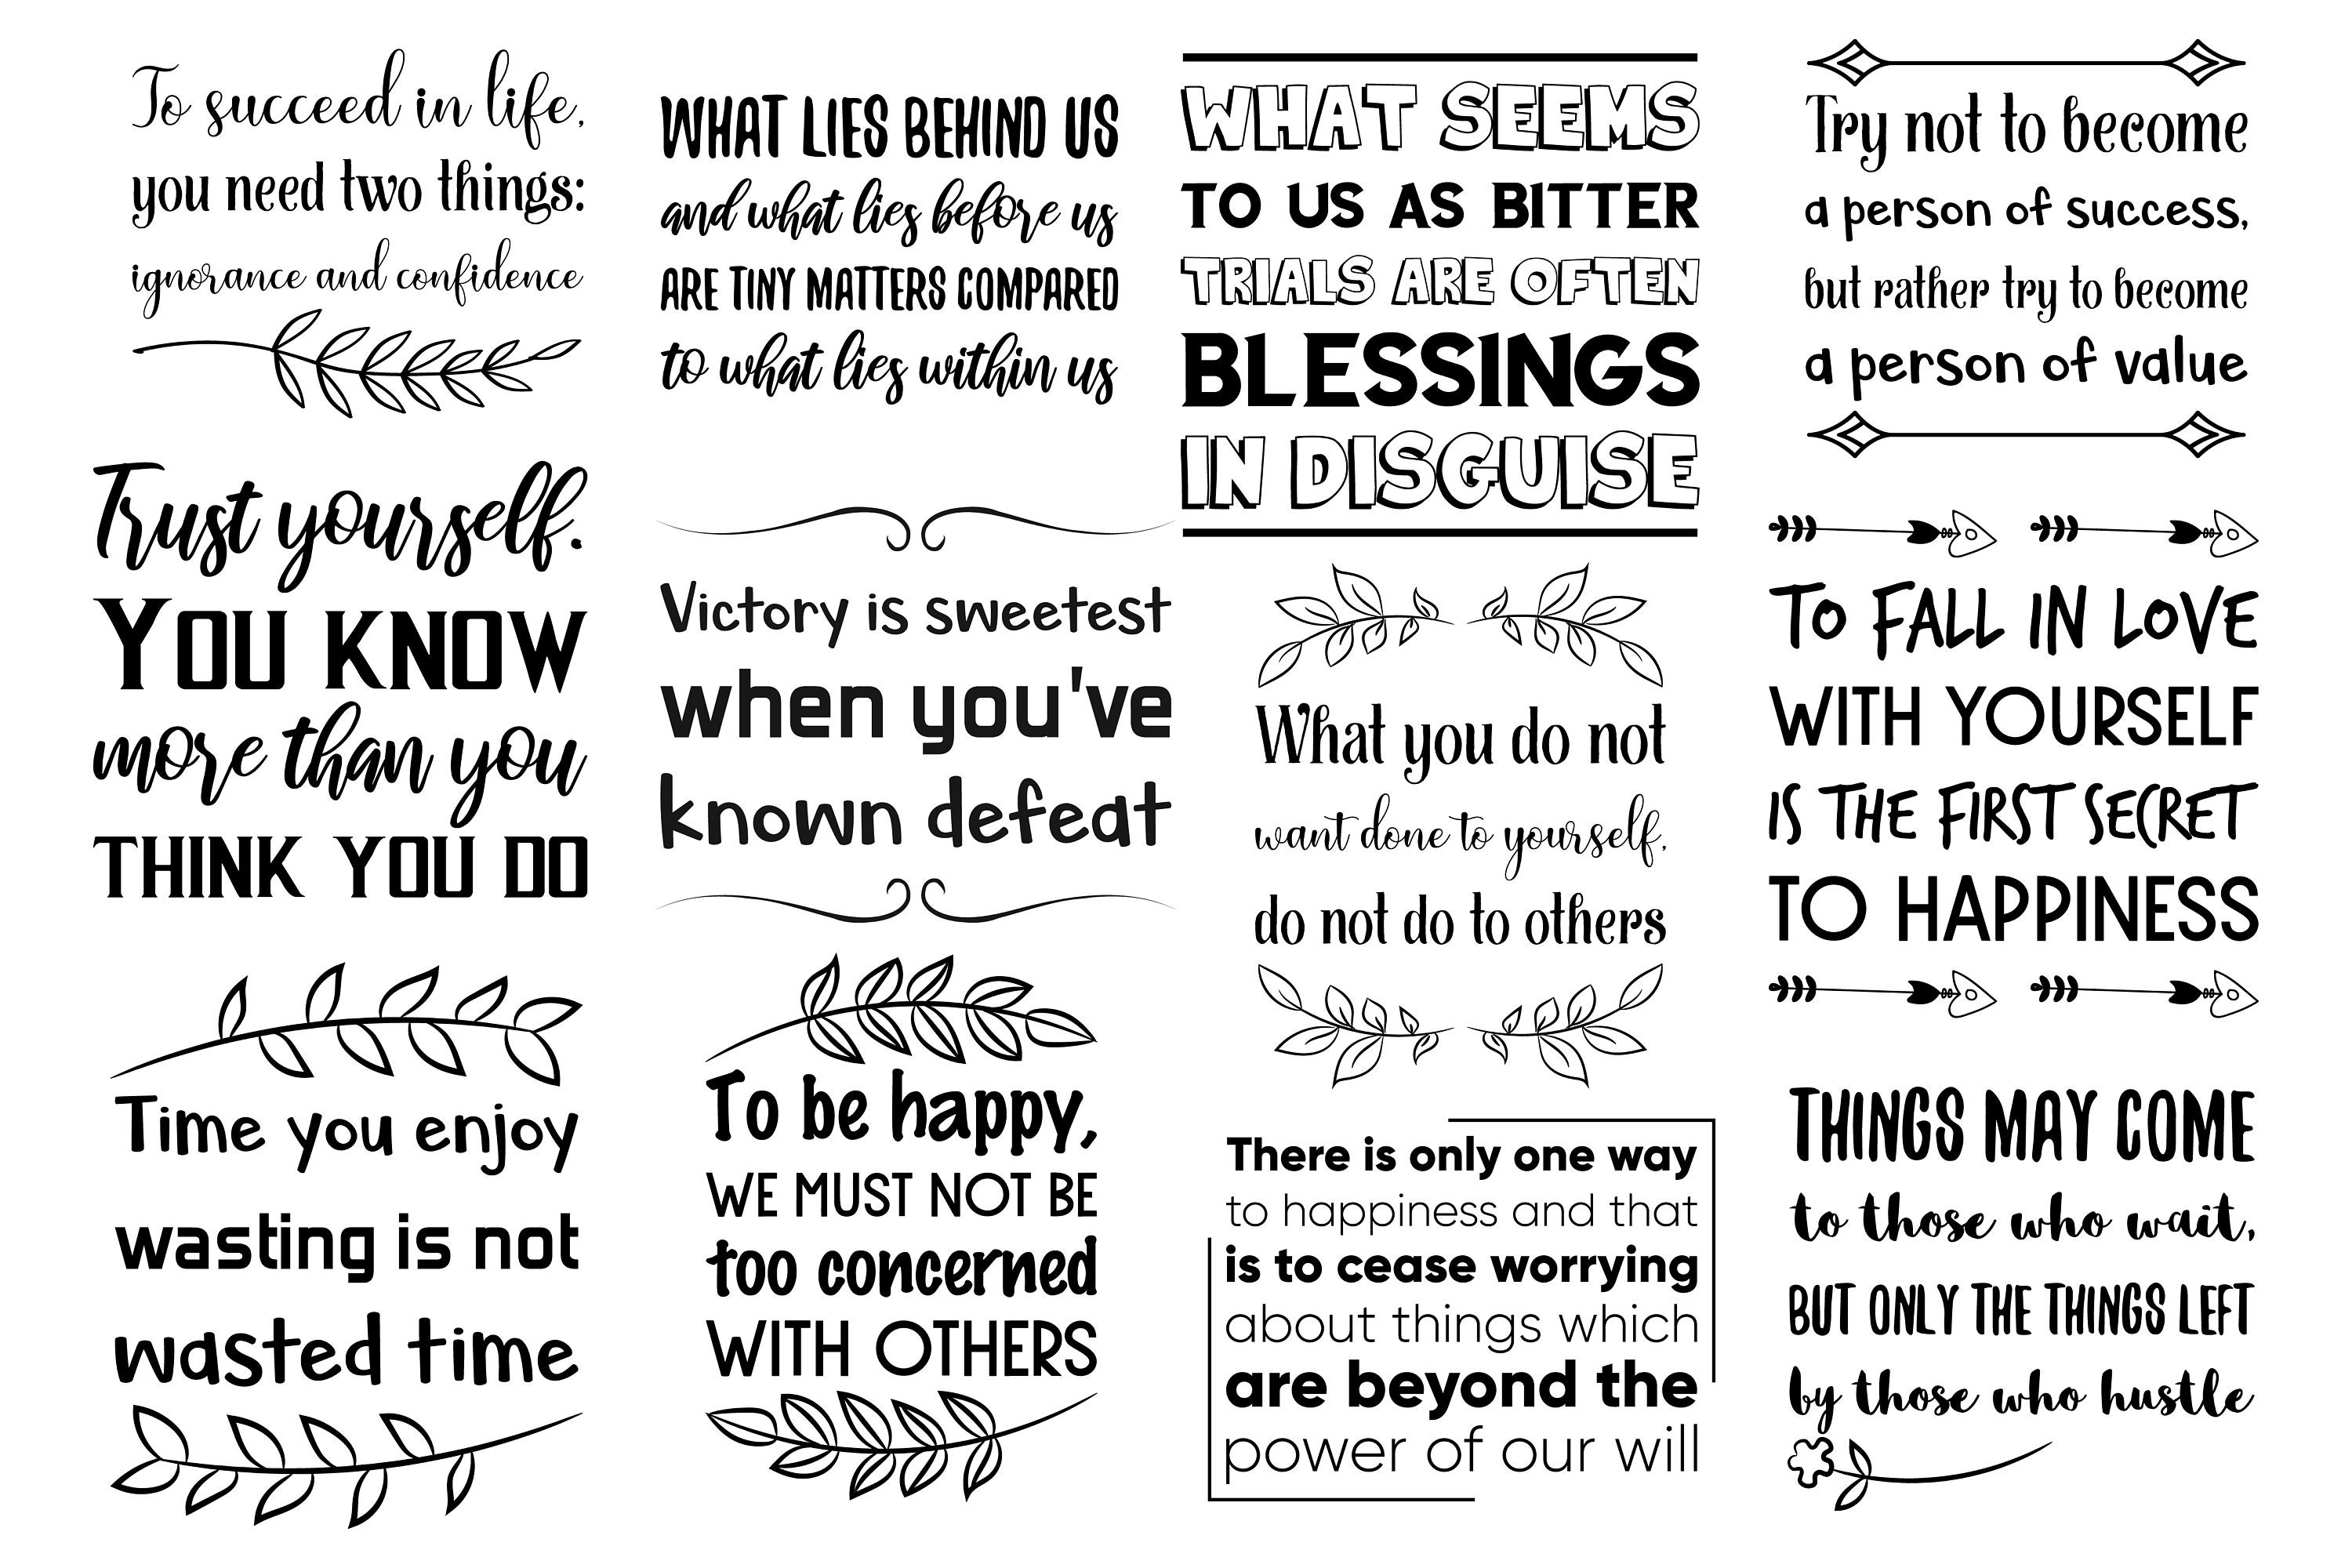 To succeed in life,
you need two things:
ignorance and confidence
Trust yourself.
You know
more than you
THINK YOU DO
Time you enjoy
wasting is not
wasted time
WHAT LIES BEHIND US
and what lies before us
ARE TINY MATTERS COMPARED
to what lies within us
Victory is sweetest
when you've
known defeat
To be happy,
WE MUST NOT BE
too concerned
WITH OTHERS
WHAT SEEMS
TO US AS BITTER
TRIALS ARE OFTEN
BLESSINGS
IN DISGUISE
What you do not
want done to yourself,
do not do to others
There is only one way
to happiness and that
is to cease worrying
about things which
are beyond the
power of our will
Try not to become
a person of success,
but rather try to become
a person of value
TO FALL IN LOVE
WITH YOURSELF
IS THE FIRST SECRET
TO HAPPINESS
THINGS MAY COME
to those who wait,
BUT ONLY THE THINGS LEFT
by those who hustle